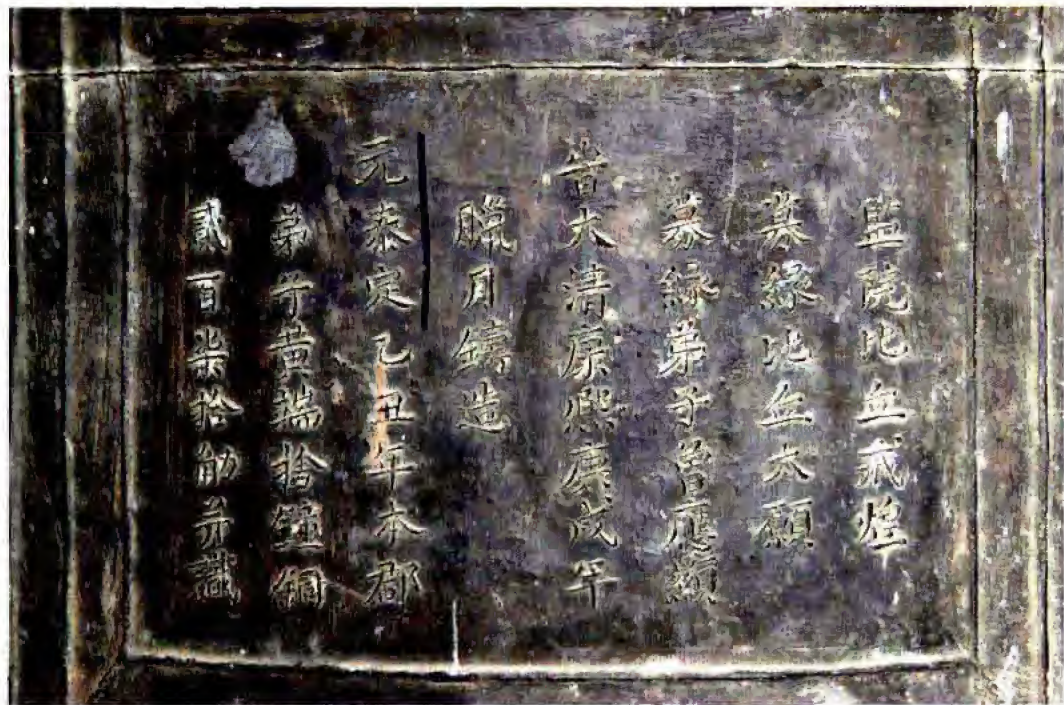 監院比丘戒煌
募緣比丘大願
募緣弟子曾應顯
旹大清康熙庚戌年
臘月鑄造
元泰定乙丑年本郡
弟子黃瑞捨鐘銅
貳百柒拾觔并識